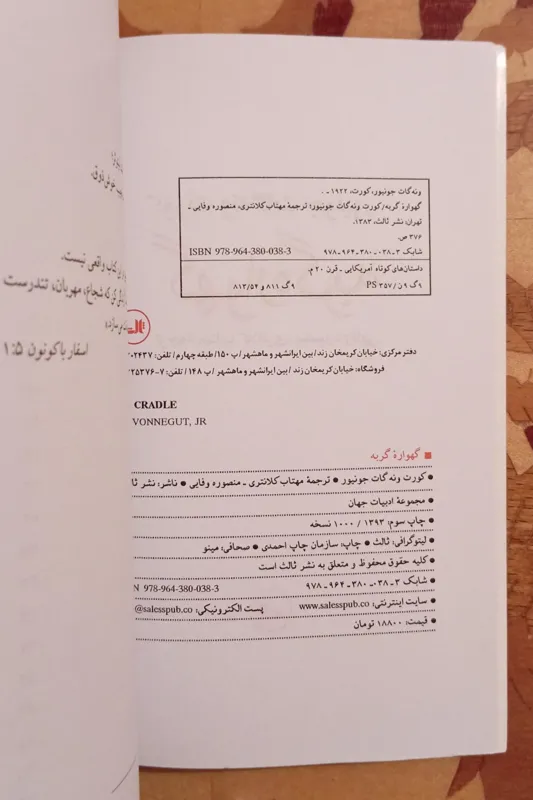 ونه‌گات جونیور، کورت، ۱۹۲۲ - .
گهوارهٔ گربه/ کورت ونه‌گات جونیور؛ ترجمهٔ مهتاب کلانتری، منصوره وفایی ـ
تهران: نشر ثالث، ۱۳۸۳.
۳۷۶ ص.
شابک ۳-۰۳۸-۳۸۰-۹۶۴-۹۷۸ ISBN 978-964-380-038-3
داستان‌های کوتاه آمریکایی - قرن ۲۰ م.
۹گ ۹ن/ ۳۵۷ PS ۹گ ۸۱۱ و ۸۱۳/۵۴
دفتر مرکزی: خیابان کریمخان زند/ بین ایرانشهر و ماهشهر/ پ ۱۵۰/ طبقه چهارم/ تلفن:
فروشگاه: خیابان کریمخان زند/ بین ایرانشهر و ماهشهر/ پ ۱۴۸/ تلفن:
CRADLE
VONNEGUT, JR
■ گهوارهٔ گربه
● کورت ونه‌گات جونیور ● ترجمهٔ مهتاب کلانتری ـ منصوره وفایی ● ناشر: نشر
● مجموعهٔ ادبیات جهان
● چاپ سوم: ۱۳۹۳ / ۱۰۰۰ نسخه
● لیتوگرافی: ثالث ● چاپ: سازمان چاپ احمدی ● صحافی: مینو
● کلیه حقوق محفوظ و متعلق به نشر ثالث است
● شابک ۳-۰۳۸-۳۸۰-۹۶۴-۹۷۸ 978-964-380-038-3
● سایت اینترنتی: www.salesspub.co پست الکترونیکی: @salesspub.co
● قیمت: ۱۸۸۰۰ تومان
کتاب واقعی نیست.
که شجاع، مهربان، تندرست،
اسفار باکونون ۱:۵